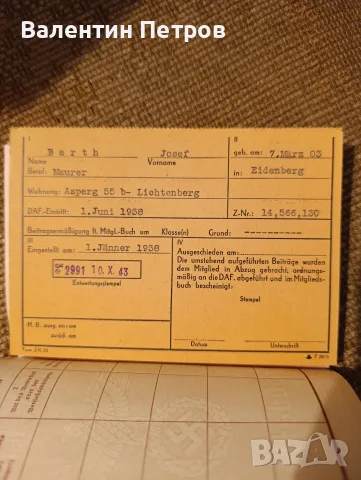 Валентин Петров
I
II
Barth Josef
Name Vorname
geb. am: 7.März 03
Beruf: Maurer
in: Eidenberg
Wohnung: Asperg 55 b- Lichtenberg
DAF.-Eintritt: 1.Juni 1938
Z-Nr.: 14,566,130
Beitragsermäßigung lt. Mitgl.-Buch um Klasse(n) Grund:
III
Eingestellt am: 1.Jänner 1938
2991 10.X.43
Entwertungsstempel
M. B. ausg. am:
zurück am:
IV
Ausgeschieden am:
Die umstehend aufgeführten Beiträge wurden
dem Mitglied in Abzug gebracht, ordnungs-
mäßig an die DAF. abgeführt und im Mitglieds-
buch bescheinigt:
Stempel
Datum Unterschrift
BAZAR